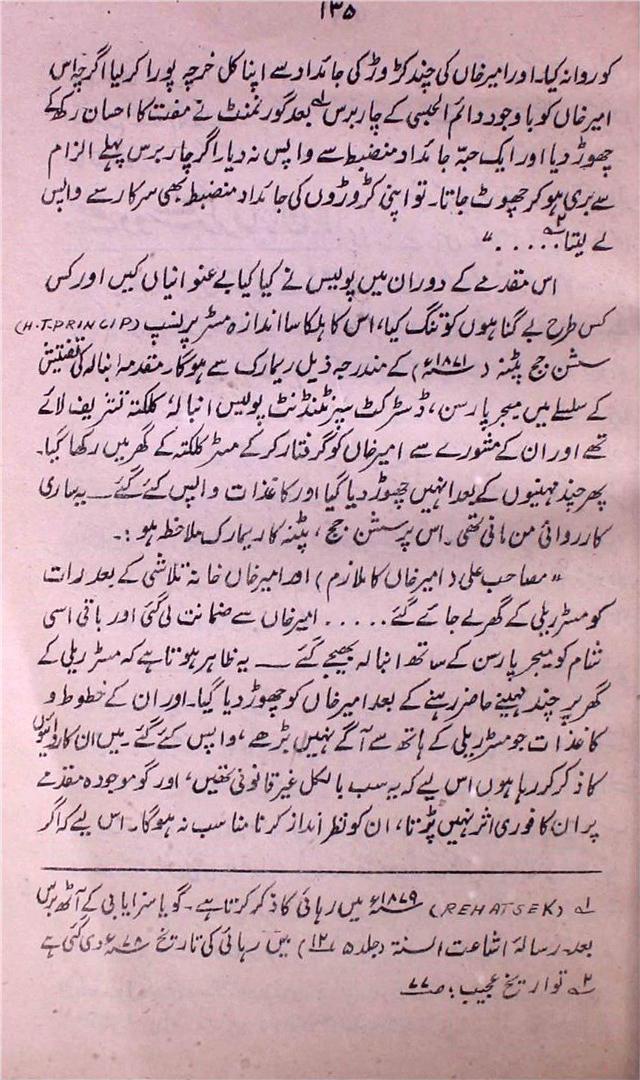 ۱۳۵
کو روانہ کیا۔ اور امیر خاں کی چند کروڑ کی جائداد سے اپنا کل خرچہ پورا کر لیا اگرچہ اس
امیر خاں کو باوجود دائم الحبسی کے چار برس۱؎ بعد گورنمنٹ نے مفت کا احسان رکھ کے
چھوڑ دیا اور ایک حبّہ جائداد منضبط سے واپس نہ دیا۔ اگر چار برس پہلے الزام
سے بری ہو کر چھوٹ جاتا۔ تو اپنی کروڑوں کی جائداد منضبط بھی سرکار سے واپس
لے لیتا۲؎ . . . . . ."
اس مقدمے کے دوران میں پولیس نے کیا کیا بے عنوانیاں کیں اور کس
کس طرح بے گناہوں کو تنگ کیا، اس کا ہلکا سا اندازہ مسٹر پرنسپ (H.T.PRINCIP)
سشن جج پٹنہ (۱۸۷۱ء) کے مندرجہ ذیل ریمارک سے ہوگا۔ مقدمہ انبالہ کی تفتیش
کے سلسلے میں میجر پارسن، ڈسٹرکٹ سپرنٹنڈنٹ پولیس انبالہ، کلکتہ تشریف لائے
تھے اور ان کے مشورے سے امیر خاں کو گرفتار کر کے مسٹر کلکتہ کے گھر میں رکھا گیا۔
پھر چند مہینوں کے بعد انہیں چھوڑ دیا گیا اور کاغذات واپس کئے گئے ــ یہ ساری
کارروائی من مانی تھی۔ اس پر سشن جج، پٹنہ کا ریمارک ملاحظہ ہو :۔
"مصاحب علی (امیر خاں کا ملازم) اور امیر خاں خانہ تلاشی کے بعد رات
کو مسٹر ریلی کے گھر لے جائے گئے . . . . . امیر خاں سے ضمانت لی گئی اور باقی اسی
شام کو میجر پارسن کے ساتھ انبالہ بھیجے گئے ــ یہ ظاہر ہوتا ہے کہ مسٹر ریلی کے
گھر پر چند مہینے حاضر رہنے کے بعد امیر خاں کو چھوڑ دیا گیا۔ اور ان کے خطوط و
کاغذات جو مسٹر ریلی کے ہاتھ سے آگے نہیں بڑھے، واپس کئے گئے۔ میں ان کارروائیوں
کا ذکر کر رہا ہوں اس لیے کہ یہ سب بالکل غیر قانونی تھیں، اور گو موجودہ مقدمے
پر ان کا فوری اثر نہیں پڑتا، ان کو نظر انداز کرنا مناسب نہ ہوگا۔ اس لیے کہ اگر
۱؎ (REHATSEK) ۱۸۷۹ء میں رہائی کا ذکر کرتا ہے۔ گویا سزایابی کے آٹھ برس
بعد۔ رسالۂ اشاعت السنۃ (جلد ۵/۱۲) میں رہائی کی تاریخ ۷۸ء دی گئی ہے
۲؎ تواریخ عجیب؛ ص ۷۷